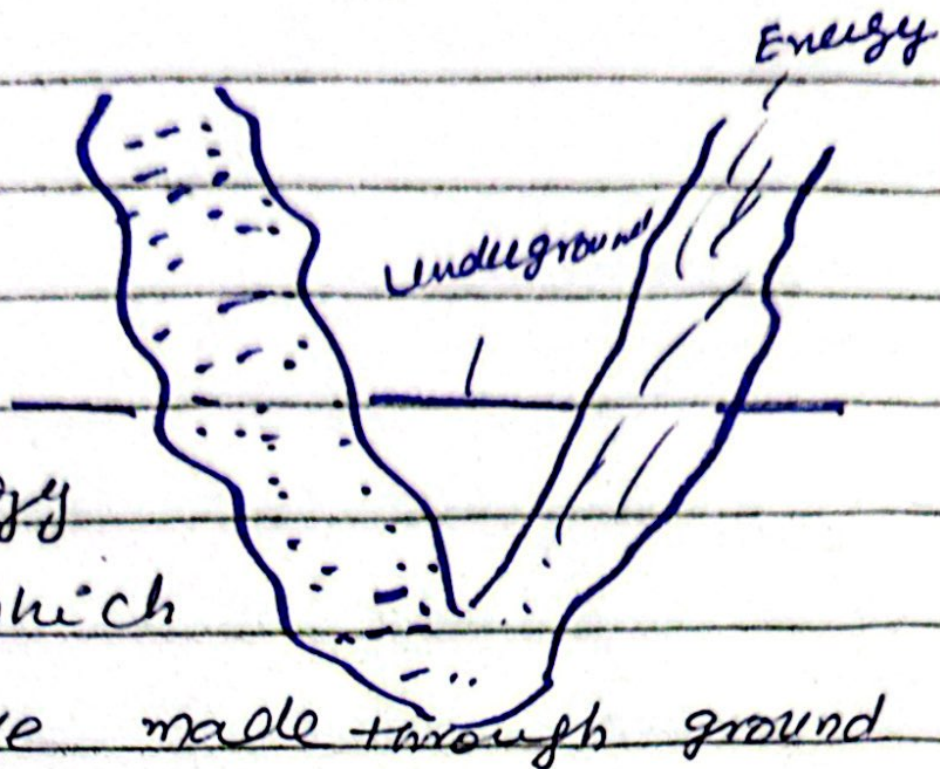 Energy
Underground
gy
hich
e made through ground